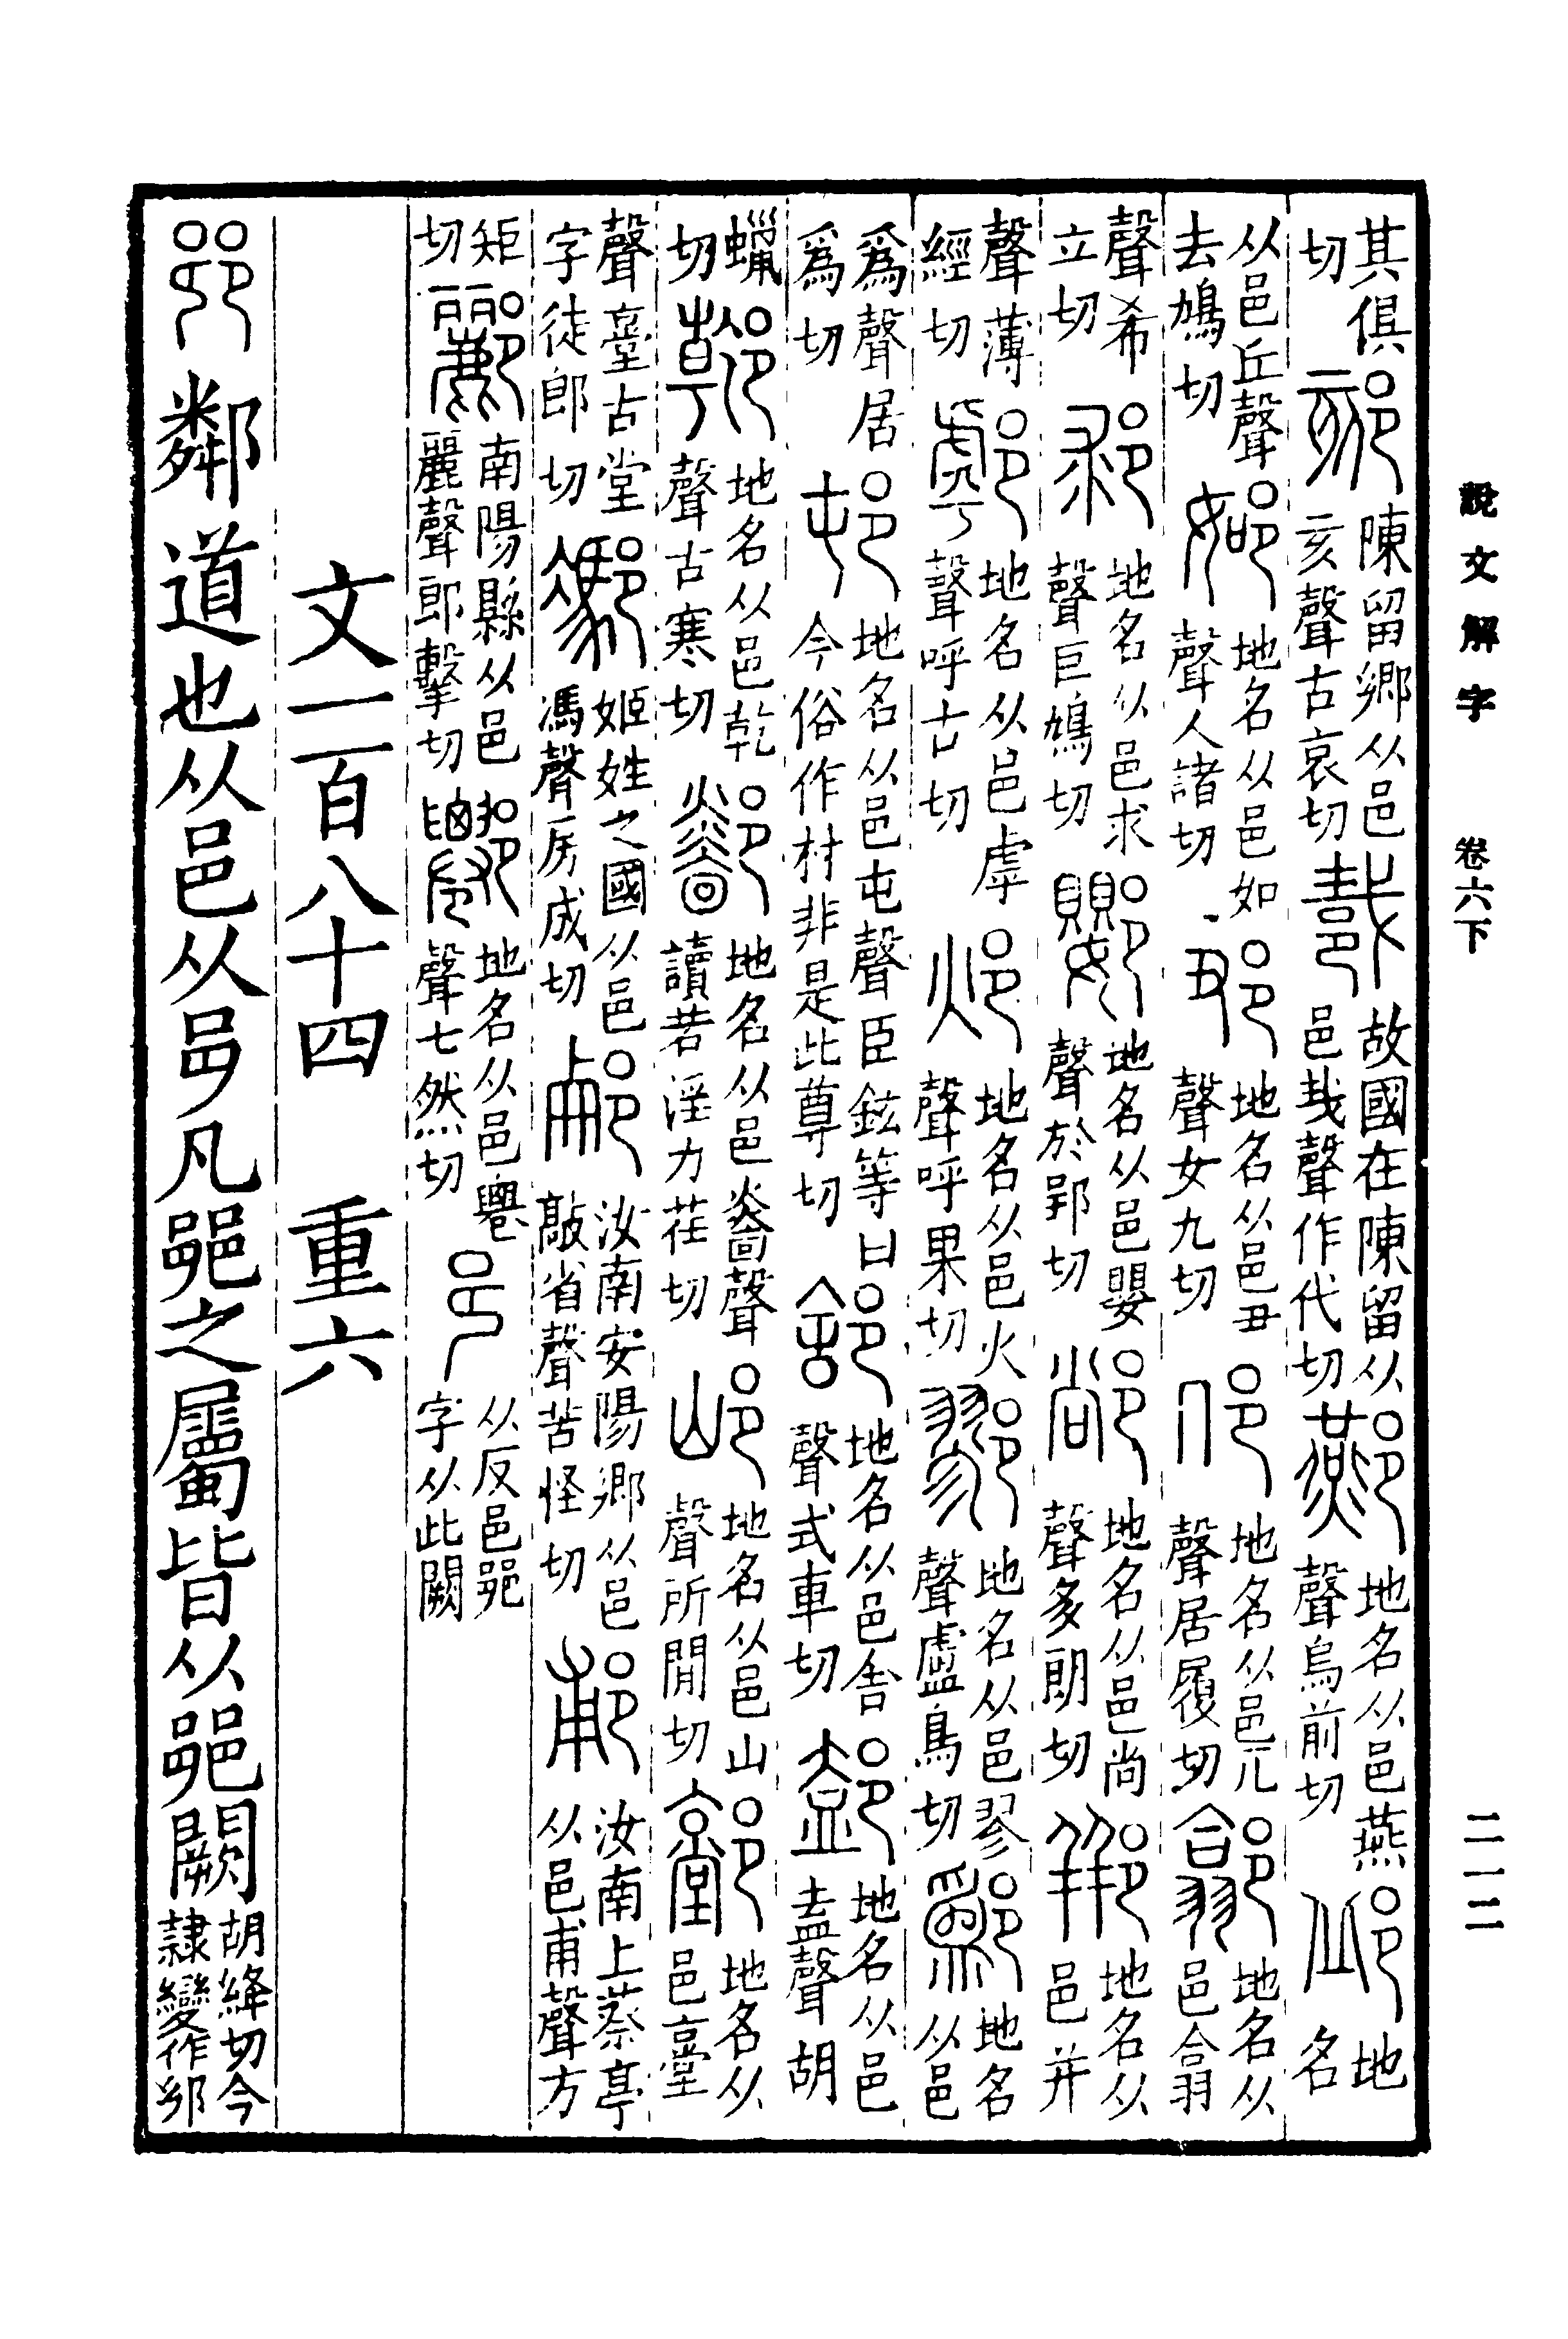 說文解字　卷六下　二一二
其俱切 郂 陳留鄉从邑亥聲古哀切 𢧀 故國在陳留从邑𢦏聲作代切 酀 地名从邑燕聲烏前切 邱 地名
从邑丘聲去鳩切 地名从邑如聲人諸切 地名从邑丑聲女九切 地名从邑几聲居履切 䣛 地名从邑翕
聲希立切 地名从邑求聲巨鳩切 地名从邑嬰聲於郢切 地名从邑尚聲多朗切 郱 地名从邑并
聲薄經切 地名从邑虖聲呼古切 邩 地名从邑火聲呼果切 鄝 地名从邑翏聲盧鳥切 鄬 地名从邑
爲聲居爲切 邨 地名从邑屯聲臣鉉等曰今俗作村非是此尊切 地名从邑舍聲式車切 地名从邑盍聲胡
蜡切 地名从邑乾聲古寒切 地名从邑聲讀若淫力荏切 邖 地名从邑山聲所閒切 地名从邑臺
聲臺古堂字徒郎切 姬姓之國从邑馮聲房成切 汝南安陽鄉从邑敲省聲苦怪切 郙 汝南上蔡亭从邑甫聲方
矩切 酈 南陽縣从邑麗聲郎擊切 地名从邑䙴聲七然切 𨙨 从反邑𨛜字从此闕
文一百八十四　重六
𨛜 鄰道也从邑从𨙨凡𨛜之屬皆从𨛜闕 胡絳切今隸變作